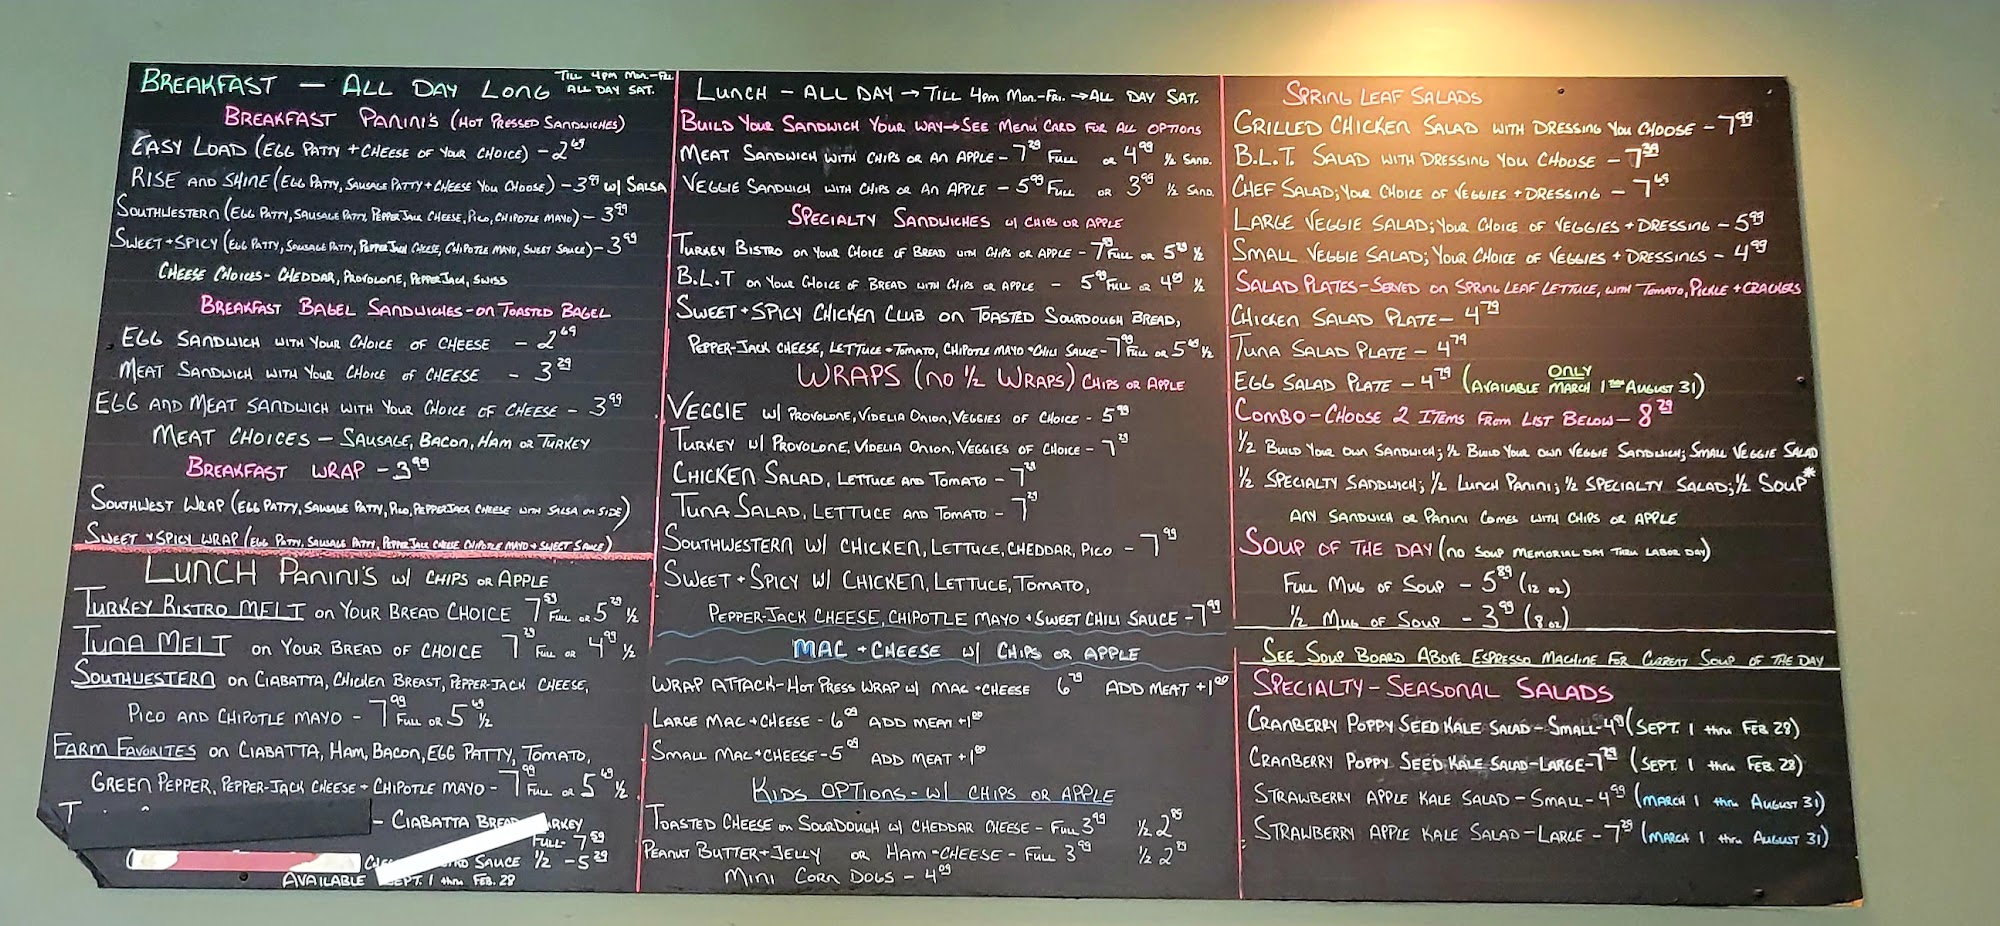 BREAKFAST — ALL DAY LONG TILL 4PM MON.-FRI. ALL DAY SAT.
BREAKFAST PANINI'S (HOT PRESSED SANDWICHES)
EASY LOAD (EGG PATTY + CHEESE OF YOUR CHOICE) - 2 69
RISE AND SHINE (EGG PATTY, SAUSAGE PATTY + CHEESE YOU CHOOSE) - 3 W/ SALSA
SOUTHWESTERN (EGG PATTY, SAUSAGE PATTY, PEPPER JACK CHEESE, PICO, CHIPOTLE MAYO) - 3 99
SWEET + SPICY (EGG PATTY, SAUSAGE PATTY, PEPPER JACK CHEESE, CHIPOTLE MAYO, SWEET SAUCE) - 3 99
CHEESE CHOICES - CHEDDAR, PROVOLONE, PEPPER JACK, SWISS
BREAKFAST BAGEL SANDWICHES - ON TOASTED BAGEL
EGG SANDWICH WITH YOUR CHOICE OF CHEESE - 2 69
MEAT SANDWICH WITH YOUR CHOICE OF CHEESE - 3 29
EGG AND MEAT SANDWICH WITH YOUR CHOICE OF CHEESE - 3 99
MEAT CHOICES — SAUSAGE, BACON, HAM OR TURKEY
BREAKFAST WRAP - 3 99
SOUTHWEST WRAP (EGG PATTY, SAUSAGE PATTY, PICO, PEPPERJACK CHEESE WITH SALSA ON SIDE)
SWEET + SPICY WRAP (EGG PATTY, SAUSAGE PATTY, PEPPER JACK CHEESE CHIPOTLE MAYO + SWEET SAUCE)
LUNCH PANINI'S W/ CHIPS OR APPLE
TURKEY BISTRO MELT ON YOUR BREAD CHOICE 7 59 FULL OR 5 29 1/2
TUNA MELT ON YOUR BREAD OF CHOICE 7 29 FULL OR 4 99 1/2
SOUTHWESTERN ON CIABATTA, CHICKEN BREAST, PEPPER-JACK CHEESE,
PICO AND CHIPOTLE MAYO - 7 99 FULL OR 5 69 1/2
FARM FAVORITES ON CIABATTA, HAM, BACON, EGG PATTY, TOMATO,
GREEN PEPPER, PEPPER-JACK CHEESE + CHIPOTLE MAYO - 7 99 FULL OR 5 69 1/2
T - CIABATTA BREAD
FULL - 7 59
SAUCE 1/2 - 5 29
AVAILABLE SEPT. 1 thru FEB. 28
LUNCH - ALL DAY → TILL 4PM MON.-FRI. → ALL DAY SAT.
BUILD YOUR SANDWICH YOUR WAY → SEE MENU CARD FOR ALL OPTIONS
MEAT SANDWICH WITH CHIPS OR AN APPLE - 7 29 FULL OR 4 99 1/2 SAND.
VEGGIE SANDWICH WITH CHIPS OR AN APPLE - 5 99 FULL OR 3 99 1/2 SAND.
SPECIALTY SANDWICHES W/ CHIPS OR APPLE
TURKEY BISTRO ON YOUR CHOICE OF BREAD WITH CHIPS OR APPLE - 7 FULL OR 5 29 1/2
B.L.T ON YOUR CHOICE OF BREAD WITH CHIPS OR APPLE - 5 99 FULL OR 4 1/2
SWEET + SPICY CHICKEN CLUB ON TOASTED SOURDOUGH BREAD,
PEPPER-JACK CHEESE, LETTUCE + TOMATO, CHIPOTLE MAYO + CHILI SAUCE - 7 99 FULL OR 5 69 1/2
WRAPS (NO 1/2 WRAPS) CHIPS OR APPLE
VEGGIE W/ PROVOLONE, VIDELIA ONION, VEGGIES OF CHOICE - 5 99
TURKEY W/ PROVOLONE, VIDELIA ONION, VEGGIES OF CHOICE - 7 29
CHICKEN SALAD, LETTUCE AND TOMATO - 7 29
TUNA SALAD, LETTUCE AND TOMATO - 7 29
SOUTHWESTERN W/ CHICKEN, LETTUCE, CHEDDAR, PICO - 7 99
SWEET + SPICY W/ CHICKEN, LETTUCE, TOMATO,
PEPPER-JACK CHEESE, CHIPOTLE MAYO + SWEET CHILI SAUCE - 7 99
MAC + CHEESE W/ CHIPS OR APPLE
WRAP ATTACK - HOT PRESS WRAP W/ MAC + CHEESE 6 79 ADD MEAT +1 00
LARGE MAC + CHEESE - 6 ADD MEAT +1 00
SMALL MAC + CHEESE - 5 ADD MEAT +1 00
KIDS OPTIONS - W/ CHIPS OR APPLE
TOASTED CHEESE ON SOURDOUGH W/ CHEDDAR CHEESE - FULL 3 99 1/2 2
PEANUT BUTTER + JELLY OR HAM + CHEESE - FULL 3 99 1/2 2
MINI CORN DOGS - 4
SPRING LEAF SALADS
GRILLED CHICKEN SALAD WITH DRESSING YOU CHOOSE - 7 99
B.L.T. SALAD WITH DRESSING YOU CHOOSE - 7 39
CHEF SALAD; YOUR CHOICE OF VEGGIES + DRESSING - 7 69
LARGE VEGGIE SALAD; YOUR CHOICE OF VEGGIES + DRESSING - 5 99
SMALL VEGGIE SALAD; YOUR CHOICE OF VEGGIES + DRESSINGS - 4 99
SALAD PLATES - SERVED ON SPRING LEAF LETTUCE, WITH TOMATO, PICKLE + CRACKERS
CHICKEN SALAD PLATE - 4 79
TUNA SALAD PLATE - 4 79
EGG SALAD PLATE - 4 79 (ONLY AVAILABLE MARCH 1 THRU AUGUST 31)
COMBO - CHOOSE 2 ITEMS FROM LIST BELOW - 8 29
1/2 BUILD YOUR OWN SANDWICH; 1/2 BUILD YOUR OWN VEGGIE SANDWICH; SMALL VEGGIE SALAD
1/2 SPECIALTY SANDWICH; 1/2 LUNCH PANINI; 1/2 SPECIALTY SALAD; 1/2 SOUP*
ANY SANDWICH OR PANINI COMES WITH CHIPS OR APPLE
SOUP OF THE DAY (NO SOUP MEMORIAL DAY THRU LABOR DAY)
FULL MUG OF SOUP - 5 89 (12 OZ)
1/2 MUG OF SOUP - 3 99 (8 OZ)
SEE SOUP BOARD ABOVE ESPRESSO MACHINE FOR CURRENT SOUP OF THE DAY
SPECIALTY - SEASONAL SALADS
CRANBERRY POPPY SEED KALE SALAD - SMALL - 4 99 (SEPT. 1 thru FEB 28)
CRANBERRY POPPY SEED KALE SALAD - LARGE - 7 29 (SEPT. 1 thru FEB. 28)
STRAWBERRY APPLE KALE SALAD - SMALL - 4 99 (MARCH 1 thru AUGUST 31)
STRAWBERRY APPLE KALE SALAD - LARGE - 7 29 (MARCH 1 thru AUGUST 31)